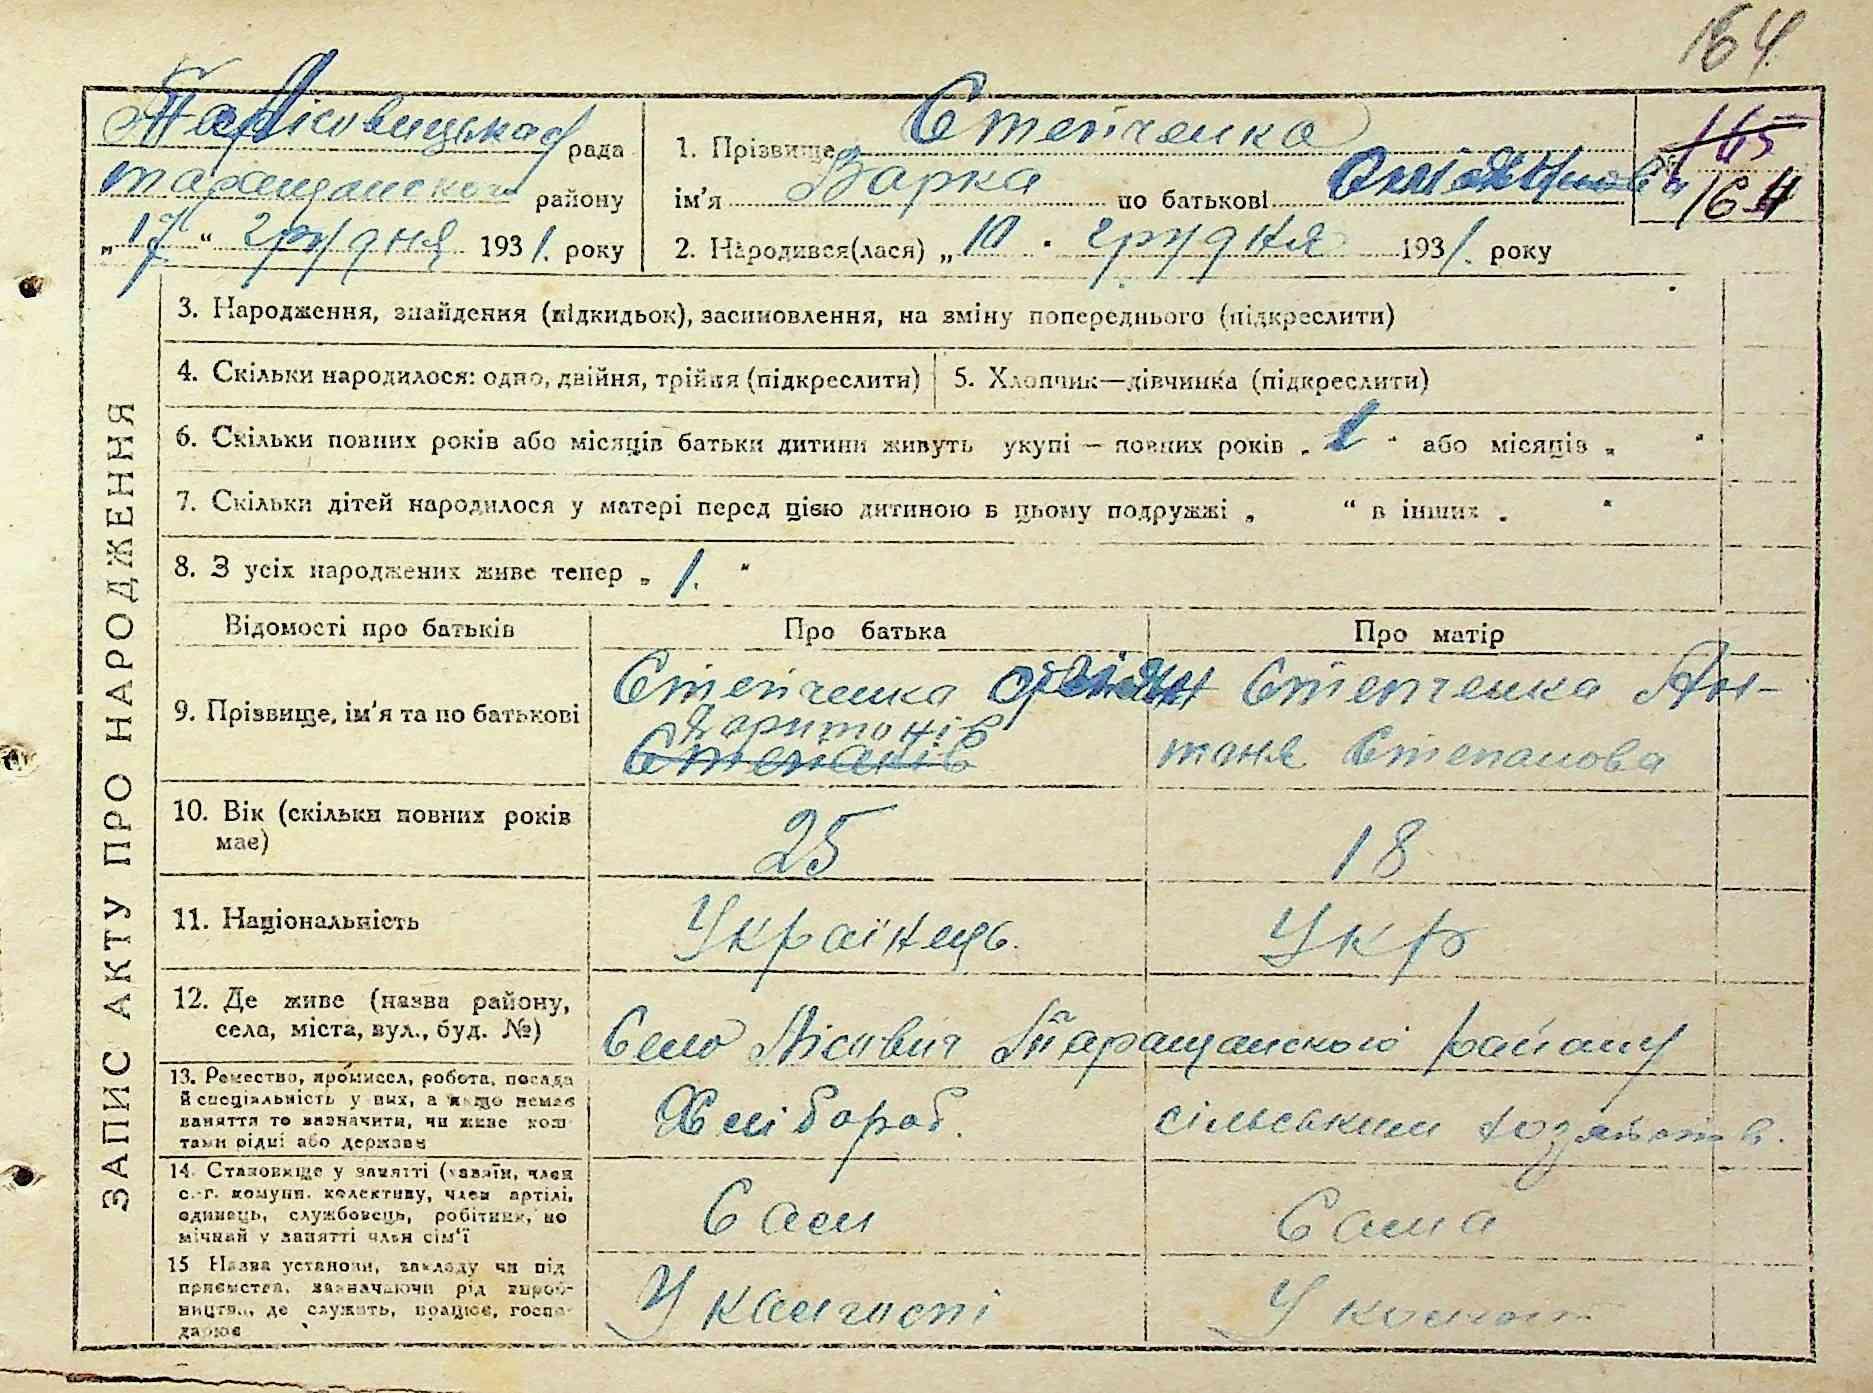 164.
Лісовицька рада
таращанского району
„17“ грудня 1931. року
1. Прізвище Степченка
ім'я Варка по батькові
165
164
2. Народився(лася) „10. грудня 1931. року
ЗАПИС АКТУ ПРО НАРОДЖЕННЯ
3. Народження, знайдення (підкидьок), засиновлення, на зміну попереднього (підкреслити)
4. Скільки народилося: одно, двійня, трійня (підкреслити)
5. Хлопчик—дівчинка (підкреслити)
6. Скільки повних років або місяців батьки дитини живуть укупі — повних років „1“ або місяців „ “
7. Скільки дітей народилося у матері перед цією дитиною в цьому подружжі „ “ в інших „ “
8. З усіх народжених живе тепер „1.“
Відомості про батьків
Про батька
Про матір
9. Прізвище, ім'я та по батькові
Степченка
Харитонів
Степанів
Степченка Ян-
тоня Степанова
10. Вік (скільки повних років
має)
25
18
11. Національність
Українець.
Укр
12. Де живе (назва району,
села, міста, вул., буд. №)
Село Лісович Таращанского району
13. Ремество, промисел, робота, посада
й спеціальність у них, а якщо немає
заняття то визначити, чи живе кош-
тами рідні або держави
Хлібороб.
сільським хозяйств.
14. Становище у занятті (хазяїн, член
с.-г. комуни, колективу, член артілі,
одинець, службовець, робітник, по
мічний у занятті член сім'ї
Сам
Сама
15 Назва установи, закладу чи під
приємства, зазначаючи рід вироб-
ництва, де служить, працює, госпо-
дарює
У
У